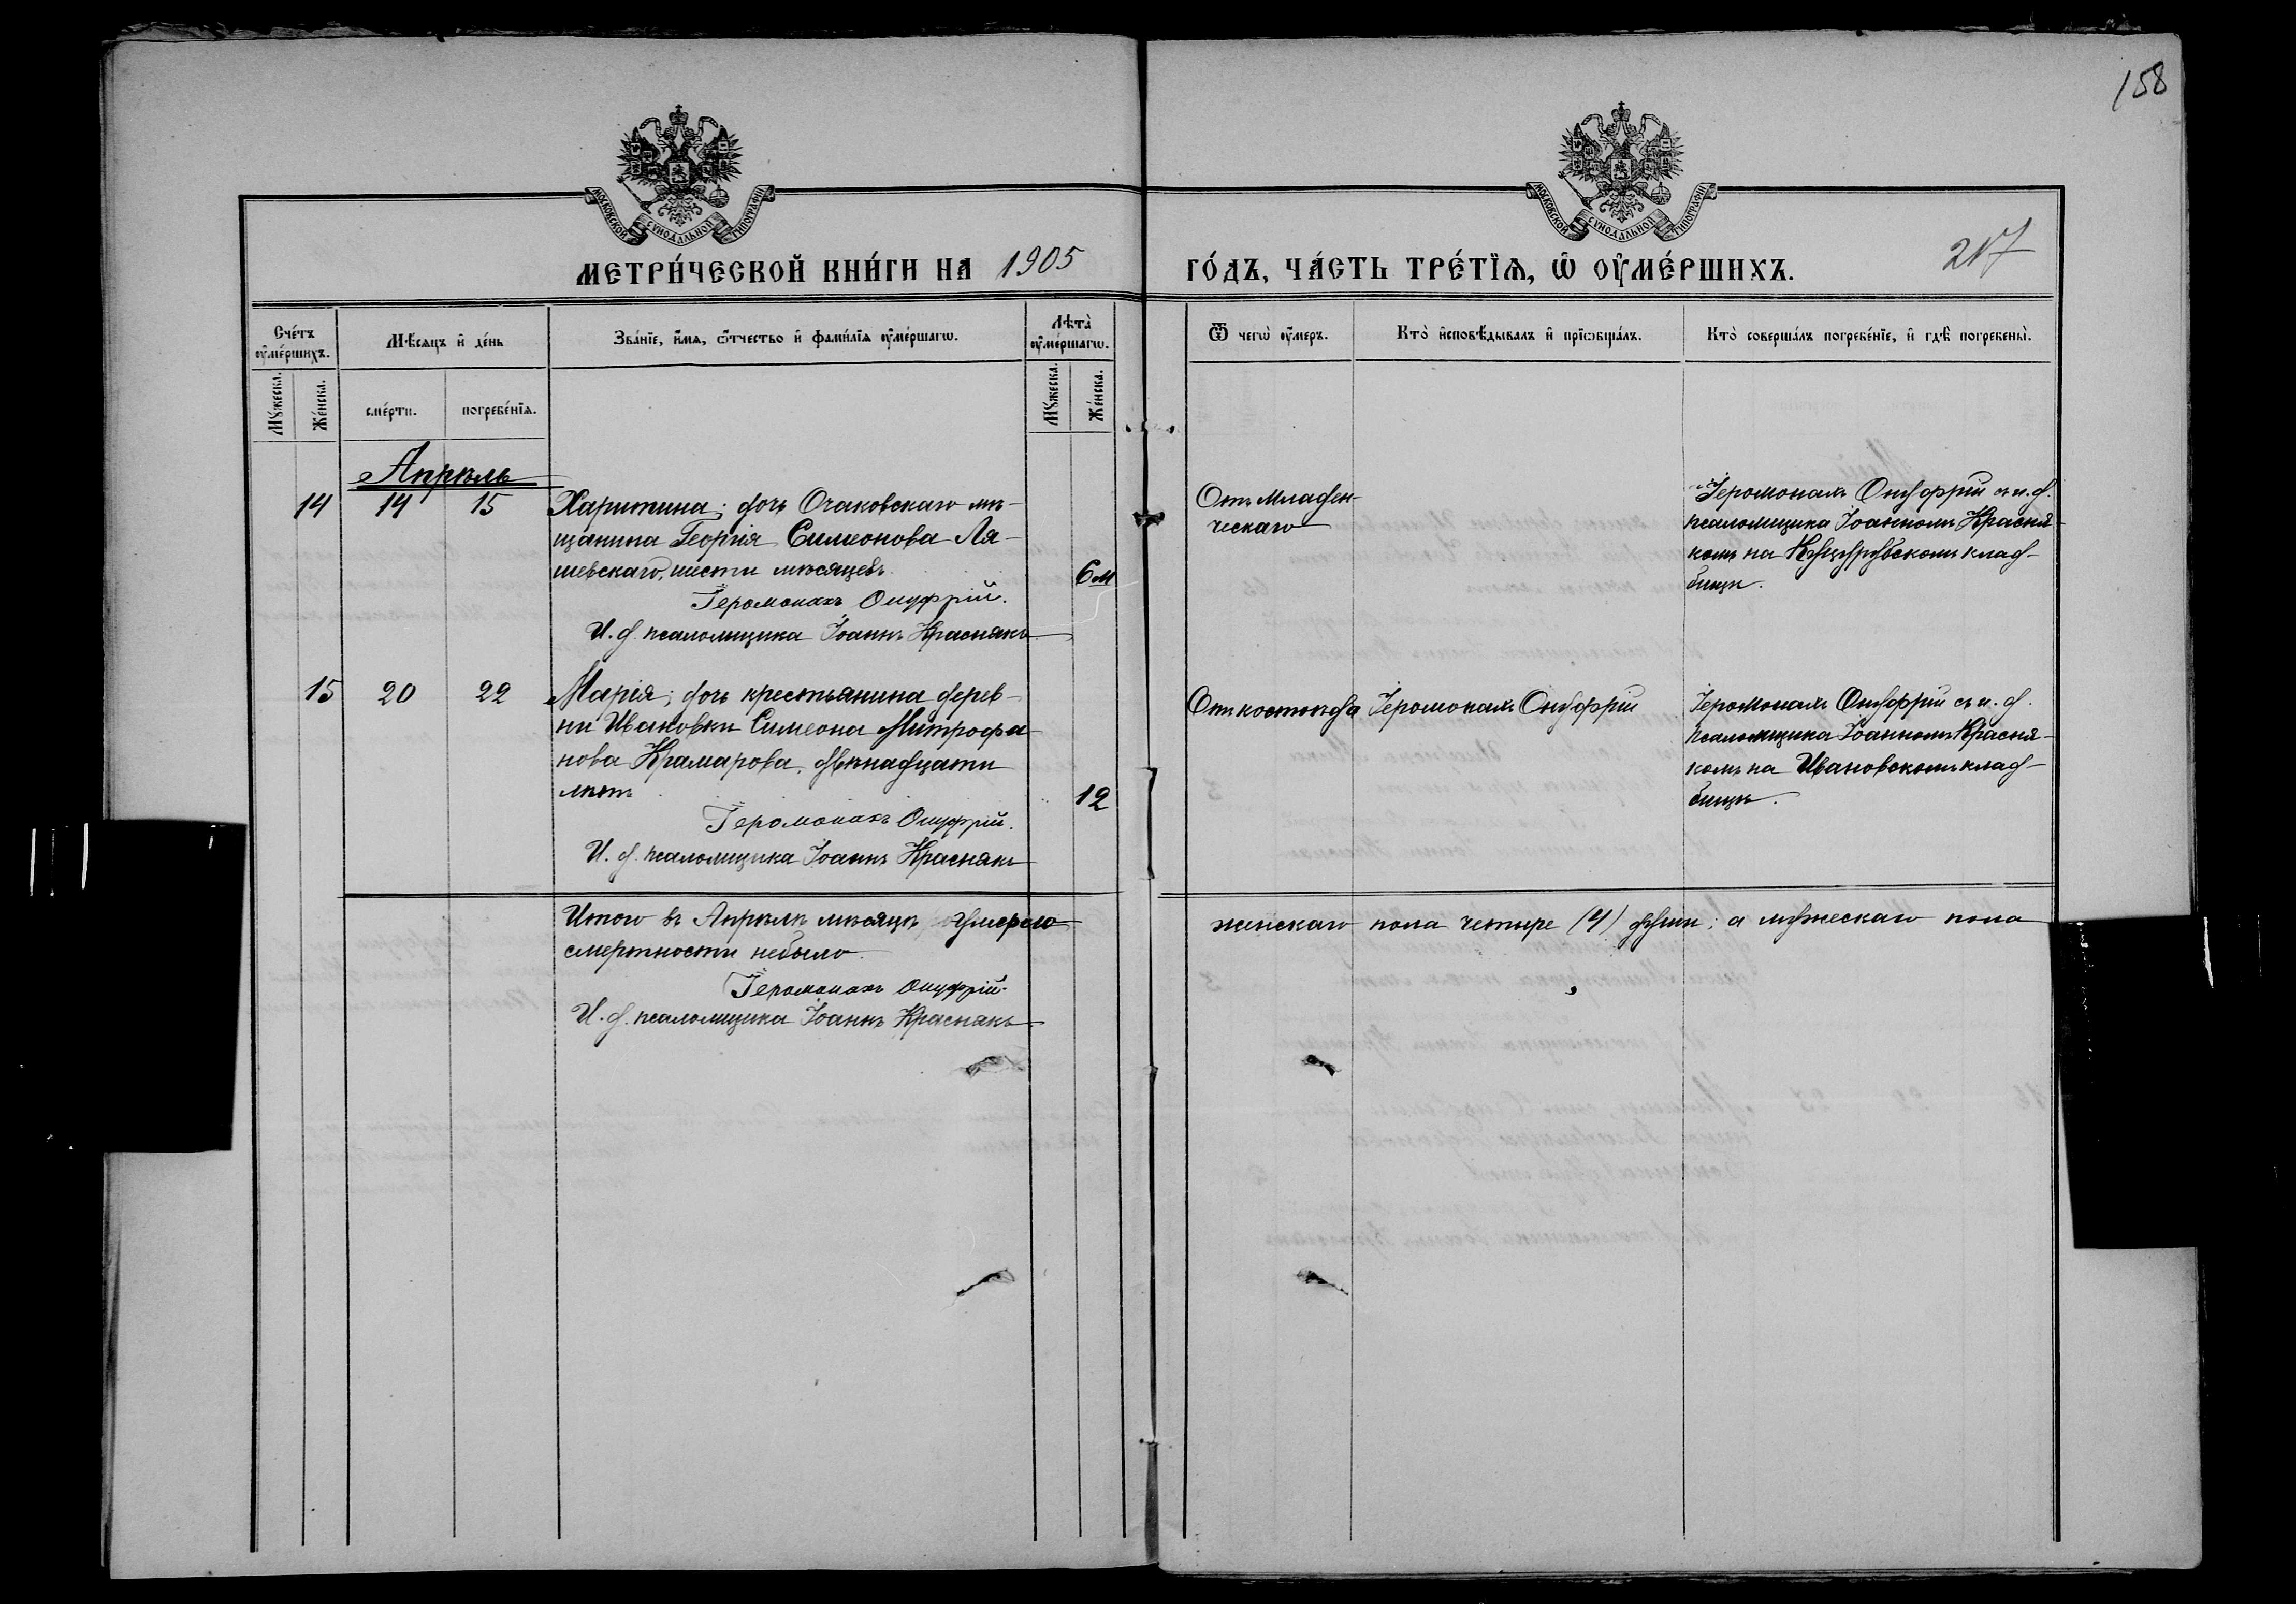 158
МОСКОВСКОЙ СѴНОДАЛЬНОЙ ТИПОГРАФІИ
МОСКОВСКОЙ СѴНОДАЛЬНОЙ ТИПОГРАФІИ
МЕТРИ́ЧЕСКОЙ КНИ́ГИ НА 1905 ГО́ДЪ, ЧА́СТЬ ТРЕ́ТЇѦ, Ѡ ОУ҆МЕ́РШИХЪ.
217
Сче́тъ оу҆ме́ршихъ.
Мѣ́сяцъ и҆ де́нь
Зва́нїе, и҆́мя, ѻ҆́тчество и҆ фами́лїя оу҆ме́ршагѡ.
Лѣта̀ оу҆ме́ршагѡ.
Ѿ чегѡ̀ оу҆́меръ.
Кто̀ и҆сповѣ́дывалъ и҆ прїѡбща́лъ.
Кто̀ соверша́лъ погребе́нїе, и҆ гдѣ̀ погребены̀.
Мꙋ́жеска.
Же́нска.
сме́рти.
погребе́нїя.
Мꙋ́жеска.
Же́нска.
Апрѣль
14 14 15 Харитина; дочь Очаковскаго мѣ-
щанина Георгія Симеонова Ля-
шевскаго, шести мѣсяцевъ. 6 м
Іеромонахъ Онуфрій.
И. д. псаломщика Іоаннъ Краснякъ
Отъ младен-
ческаго
Іеромонахъ Онуфрій съ и. д.
псаломщика Іоанномъ Красня-
комъ на Куцурубскомъ клад-
бищѣ.
15 20 22 Марія; дочь крестьянина дерев-
ни Ивановки Симеона Митрофа-
нова Крамарова, двѣнадцати
лѣтъ 12
Іеромонахъ Онуфрій.
И. д. псаломщика Іоаннъ Краснякъ
Отъ костоѣда Іеромонахъ Онуфрій
Іеромонахъ Онуфрій съ и. д.
псаломщика Іоанномъ Красня-
комъ на Ивановскомъ клад-
бищѣ.
Итого въ Апрѣлѣ мѣсяцѣ умерло женскаго пола четыре (4) души; а мужескаго пола
смертности небыло.
Іеромонахъ Онуфрій.
И. д. псаломщика Іоаннъ Краснякъ